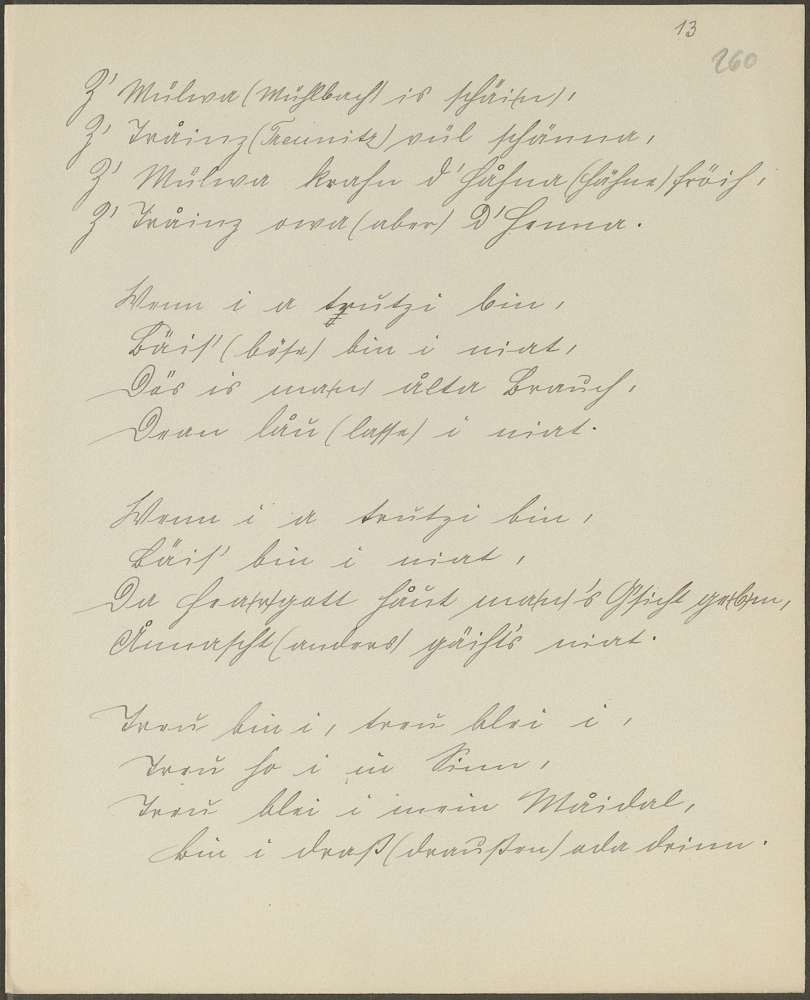 13
260
Z' Mülwa (Mühlbach) is schäi(n),
Z' Tråinz (Treunitz) vül schänna,
Z' Mülwa krahn d' Håhna (Hähne) fröih,
Z' Tråinz owa (aber) d' Henna.
Wenn i a trutzi bin,
Bäis' (böse) bin i niat,
Dös is ma(n) ålta Brauch,
Dean låu (lasse) i niat.
Wenn i a trutzi bin,
Bäis' bin i niat,
Da Hea(r)rgott håut ma(n)'s Gsicht ge(b)m,
Ånnascht (anders) gäiht's niat.
Treu bin i, treu blei i,
Treu ho i in Sinn,
Treu blei i mein Måidal,
Bin i draß (draußen) oda drinn.